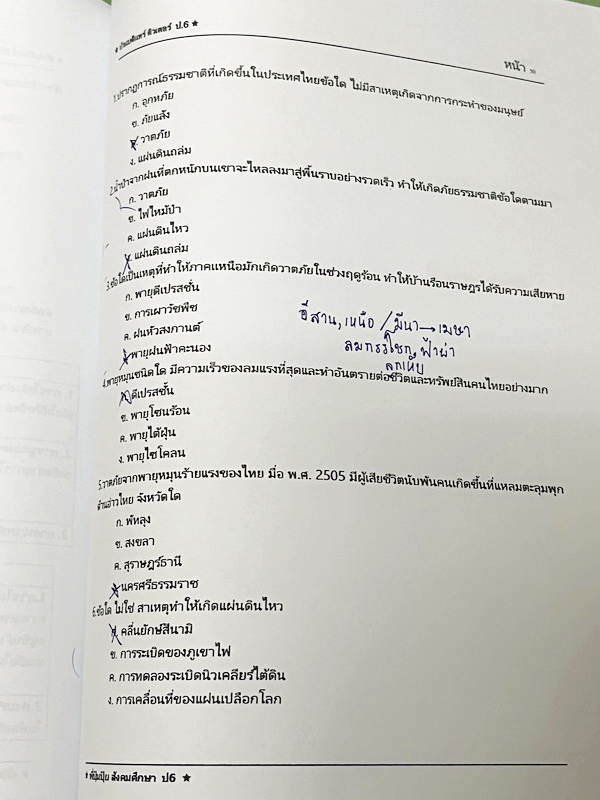 ★ บ้านเพ้นทร์ ติวเตอร์ ป.6 ★
หน้า
1.ปรากฏการณ์ธรรมชาติที่เกิดขึ้นในประเทศไทยข้อใด ไม่มีสาเหตุเกิดจากการกระทำของมนุษย์
ก. อุทกภัย
ข. ภัยแล้ง
ค. วาตภัย
ง. แผ่นดินถล่ม
2.น้ำป่าจากฝนที่ตกหนักบนเขาจะไหลลงมาสู่พื้นราบอย่างรวดเร็ว ทำให้เกิดภัยธรรมชาติข้อใดตามมา
ก. วาตภัย
ข. ไฟไหม้ป่า
ค. แผ่นดินไหว
ง. แผ่นดินถล่ม
3.ข้อใดเป็นเหตุที่ทำให้ภาคเหนือมักเกิดวาตภัยในช่วงฤดูร้อน ทำให้บ้านเรือนราษฎรได้รับความเสียหาย
ก. พายุดีเปรสชั่น
ข. การเผาวัชพืช
ค. ฝนหัวสงกานต์
ง. พายุฝนฟ้าคะนอง
อีสาน, เหนือ / มีนา → เมษา
ลมกรรโชก, ฟ้าผ่า
ลูกเห็บ
4.พายุหมุนชนิดใด มีความเร็วของลมแรงที่สุดและทำอันตรายต่อชีวิตและทรัพย์สินคนไทยอย่างมาก
ก. ดีเปรสชั้น
ข. พายุโซนร้อน
ค. พายุไต้ฝุ่น
ง. พายุไซโคลน
5.วาตภัยจากพายุหมุนร้ายแรงของไทย มื่อ พ.ศ. 2505 มีผู้เสียชีวิตนับพันคนเกิดขึ้นที่แหลมตะลุมพุก
ด้านอ่าวไทย จังหวัดใด
ก. พัทลุง
ข. สงขลา
ค. สุราษฎร์ธานี
ง. นครศรีธรรมราช
6.ข้อใด ไม่ใช่ สาเหตุทำให้เกิดแผ่นดินไหว
ก. คลื่นยักษ์สึนามิ
ข. การระเบิดของภูเขาไฟ
ค. การทดลองระเบิดนิวเคลียร์ใต้ดิน
ง. การเคลื่อนที่ของแผ่นเปลือกโลก
★ พี่ปุ้มปุ้ย สังคมศึกษา ป6 ★